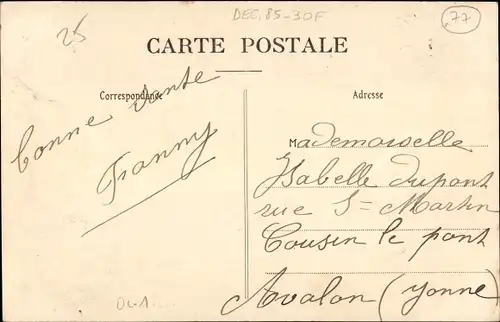 25
DEC. 85-30F
77
CARTE POSTALE
Correspondance
Adresse
bonne Sante
Franny
Mademoiselle
Isabelle dupont
rue S= Martin
Cousin le pont
Avalon (Yonne)